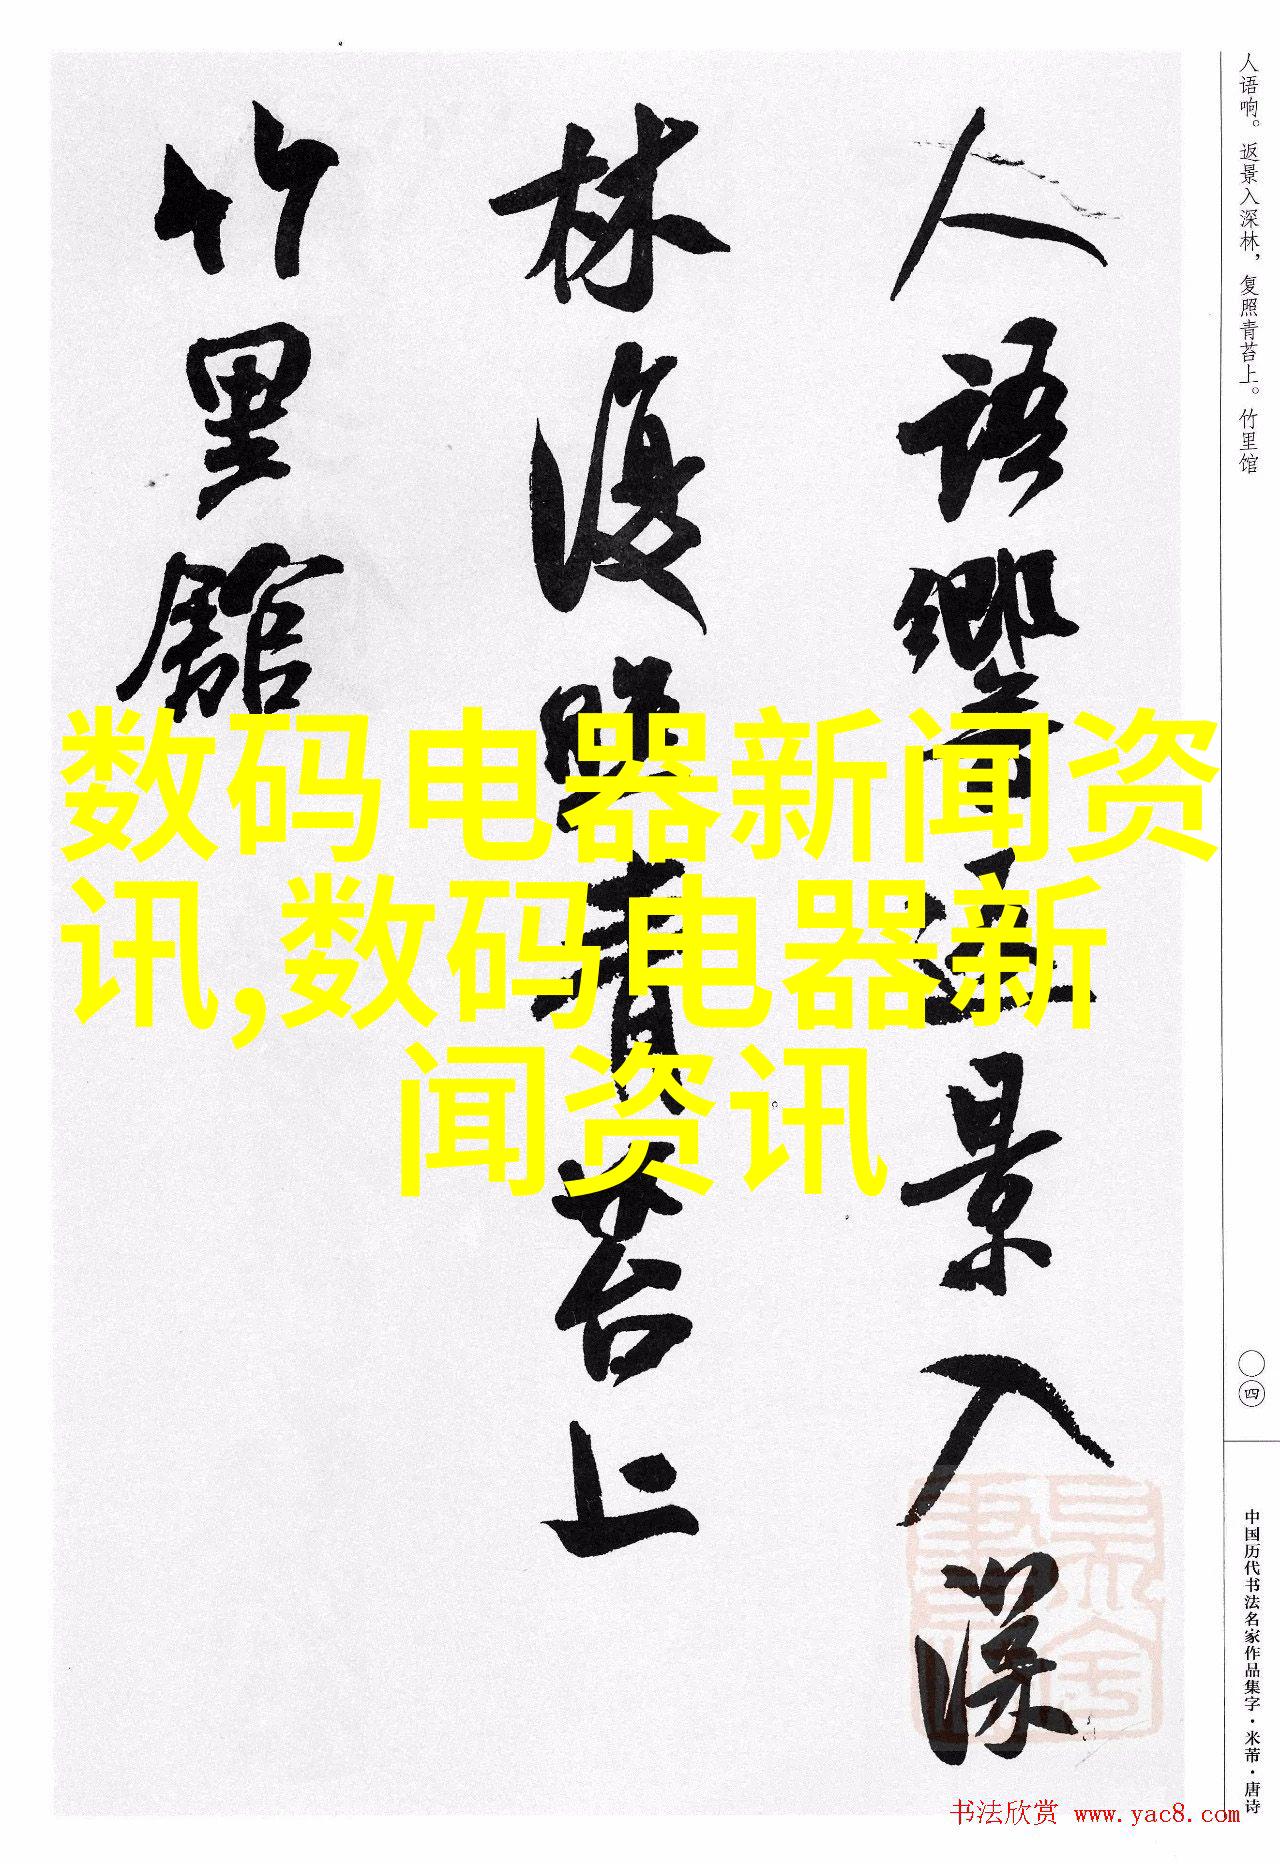 人语响。返景入深林，复照青苔上。竹里馆
人语響返景入深
林復照青苔上
竹里館
数码电器新闻资
讯,数码电器新
闻资讯
〇四
中国历代书法名家作品集字·米芾·唐诗
书法欣赏 www.yac8.com